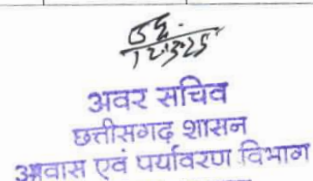 12.3.25
अवर सचिव
छत्तीसगढ़ शासन
आवास एवं पर्यावरण विभाग